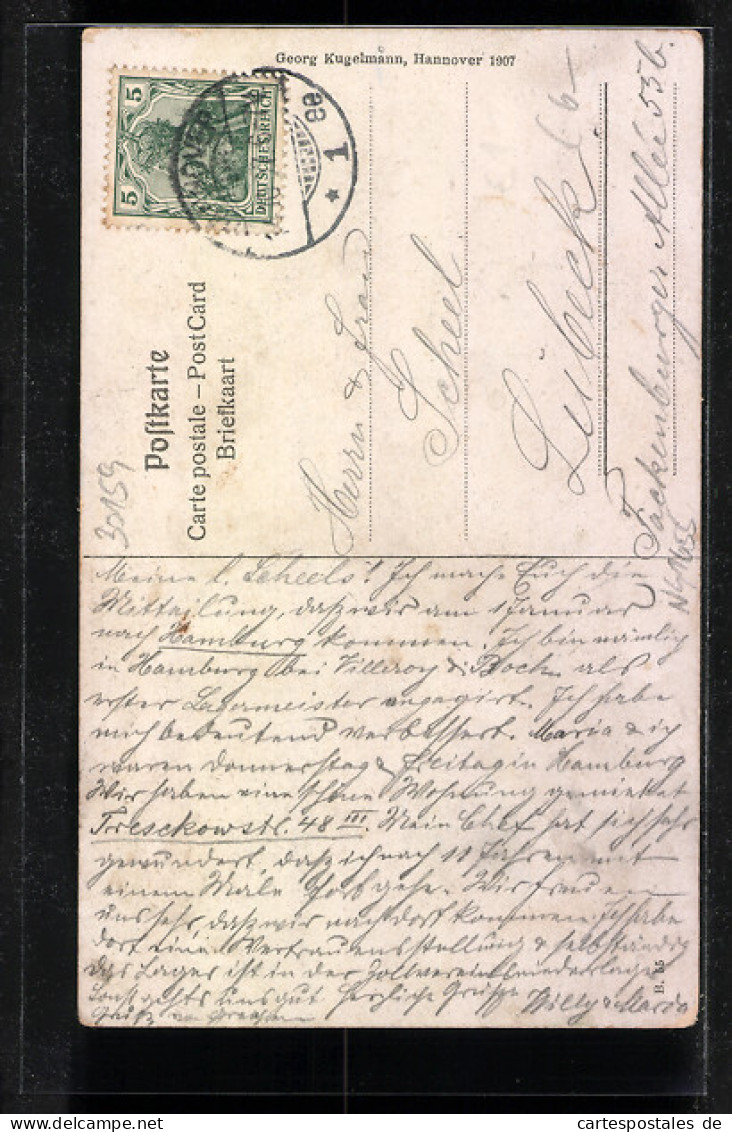 Georg Kugelmann, Hannover 1907
5
5
DEUTSCHES REICH
1
Postkarte
Carte postale – Post Card
Briefkaart
30159
Herrn & Frau
Scheel
Lübeck
Fackenburger Allee 53b.
Meine l. Scheels! Ich mache Euch die
Mitteilung, daß wir am 1 Januar
nach Hamburg kommen. Ich bin nämlich
in Hamburg bei Villeroy & Boch als
erster Lagermeister engagirt. Ich habe
mich bedeutend verbessert. Maria & ich
waren Donnerstag & Freitag in Hamburg
Wir haben eine schöne Wohnung gemietet
Tresckowstr. 48 III. Mein Chef hat sich sehr
gewundert, daß ich nach 11 Jahren mit
einem Male fortgehe. Wir freuen
uns sehr, daß wir nach dort kommen. Ich habe
dort eine Vertrauensstellung & selbständig
Das Lager ist in der Zollvereinsniederlage
Sonst gehts uns gut Herzliche Grüße Willy & Maria
Gruß
B. 55
© cartespostales.de
cartespostales.de